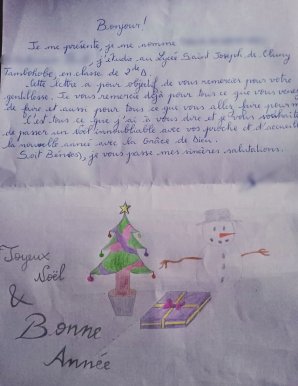 Bonjour!
Je me présente, je me nomme
j'étudie au Lycée Saint Joseph de Cluny
Tambohobe, en classe de 2nde
Cette lettre a pour objectif de vous remercier pour votre
gentillesse. Je vous remercie déjà pour tous ce que vous venez
de faire et aussi pour tous ce que vous allez faire pour
C'est tous ce que j'ai à vous dire et je vous souhaite
de passer un Noël inoubliable avec vos proche et d'accueillir
la nouvelle année avec la Grâce de Dieu.
Soit Bénées, je vous passe mes sincères salutations.
Joyeux
Noël
&
Bonne
Année